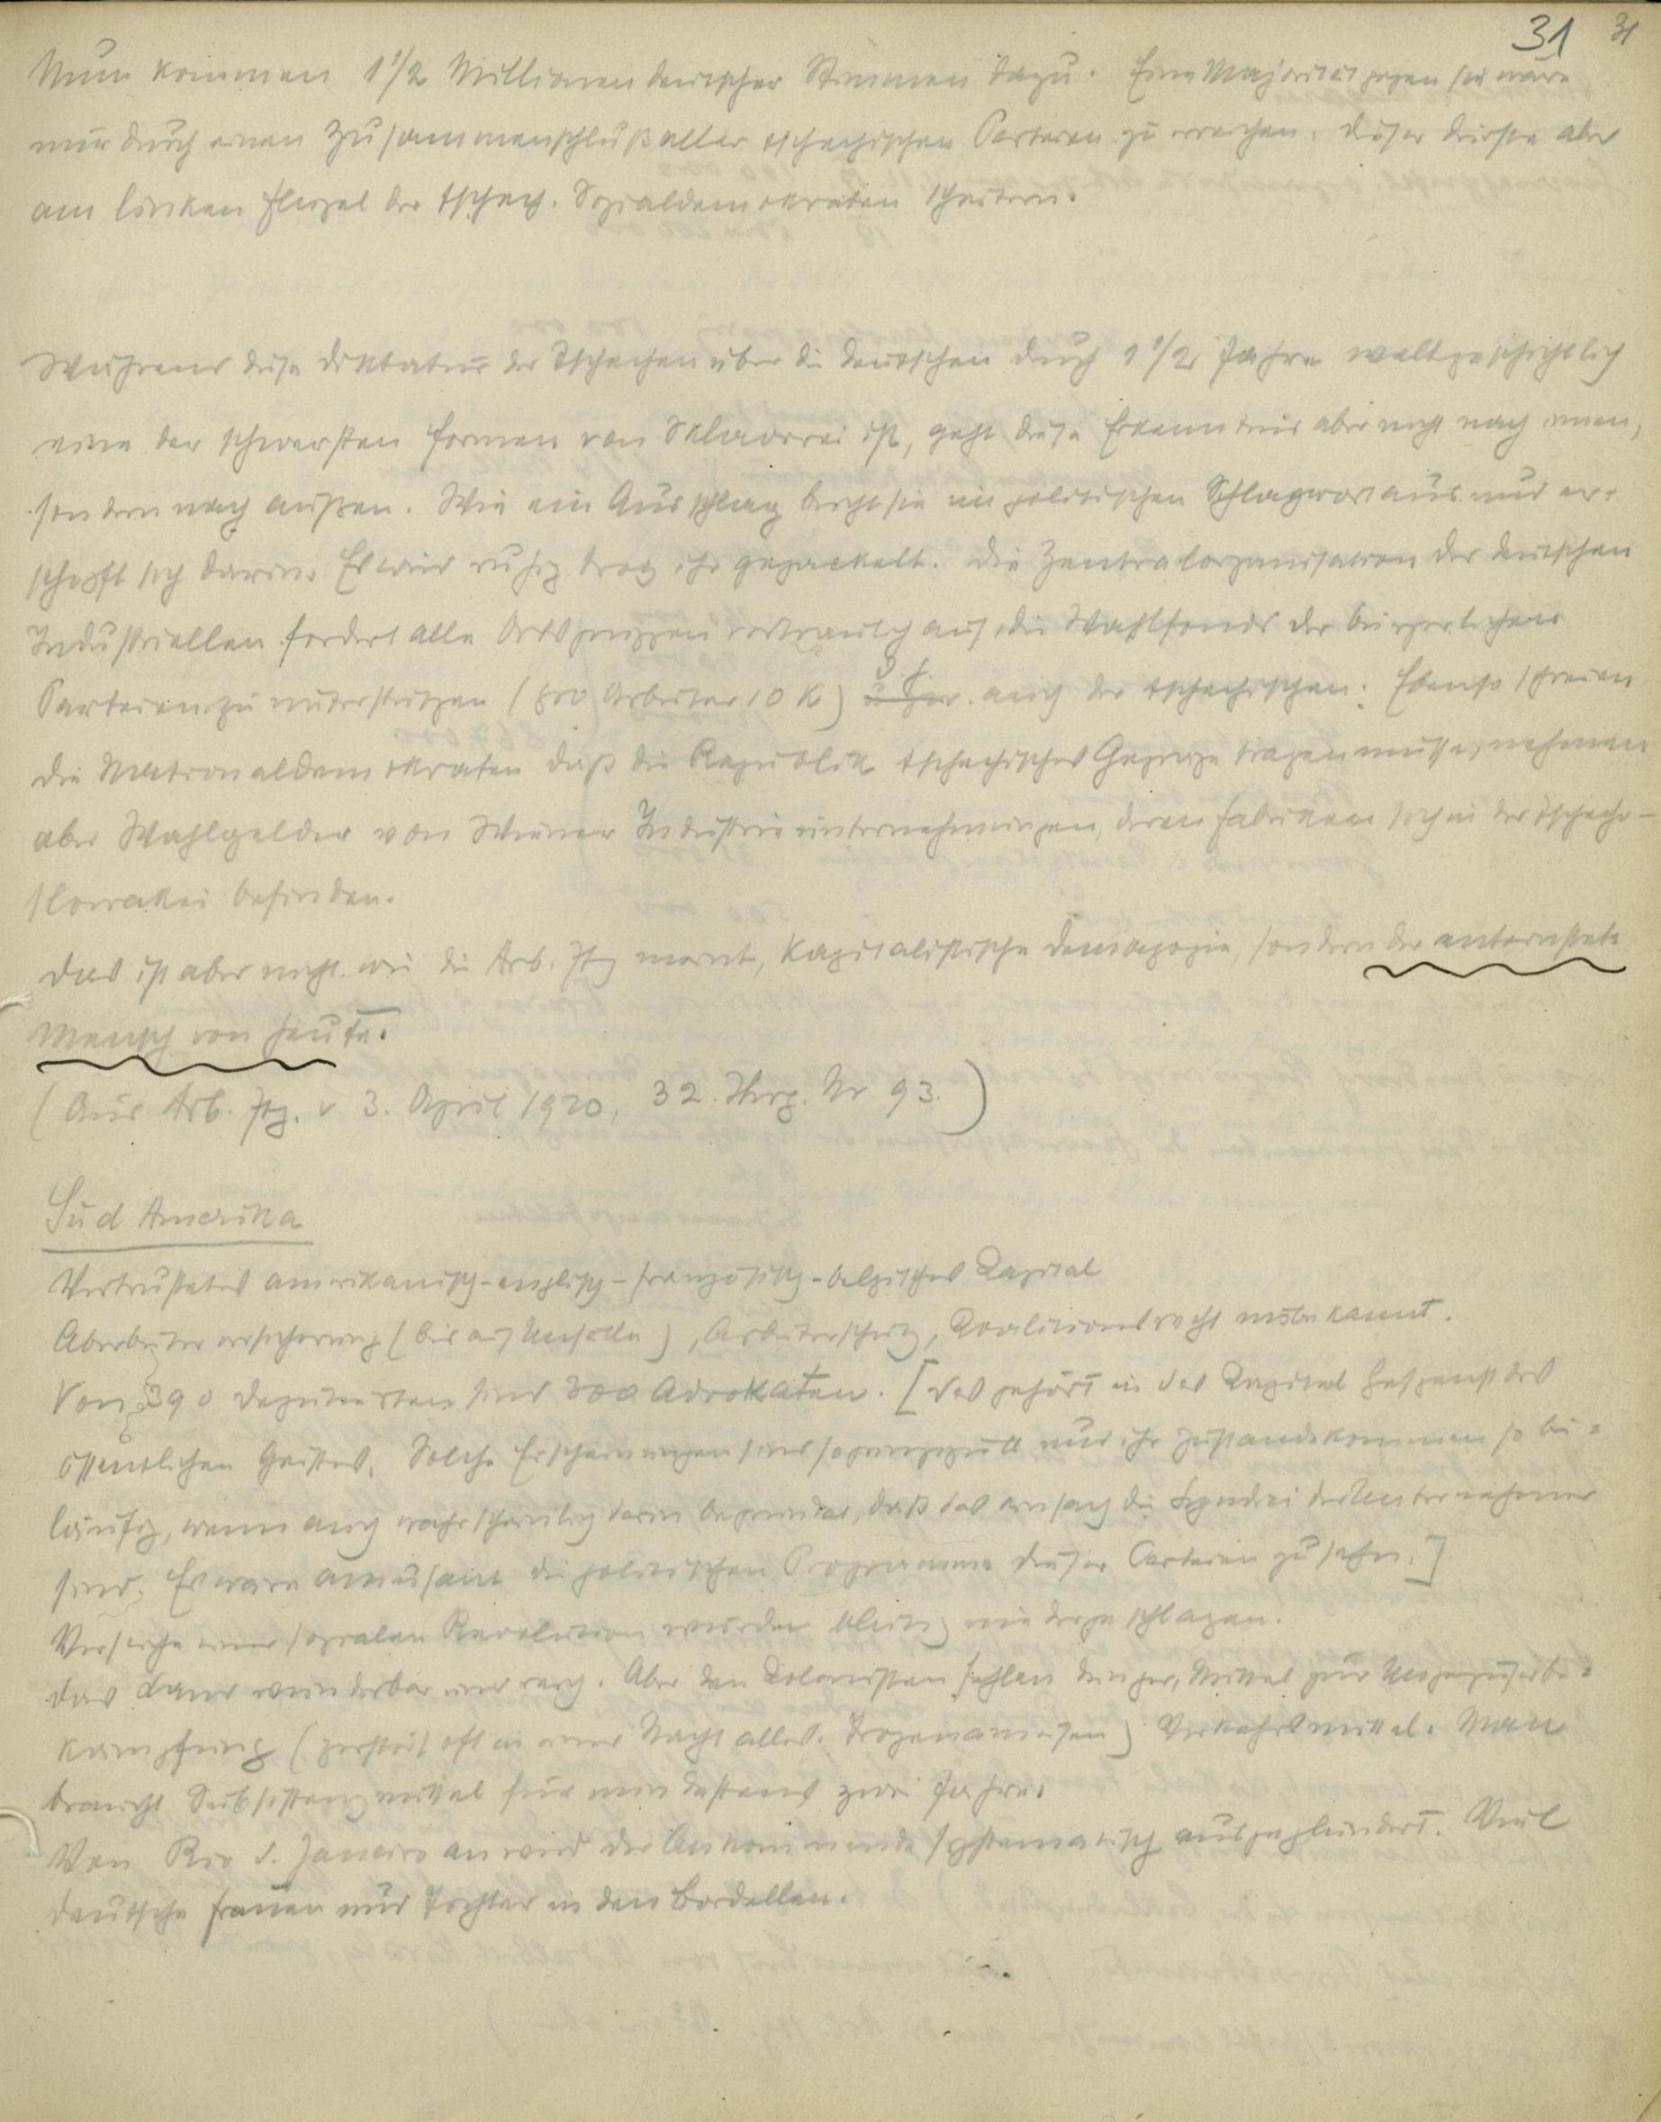 31 31
Nun kommen 1 1/2 Millionen deutscher Stimmen dazu. Eine Majorität gegen sie wäre
nur durch einen Zusammenschluß aller tschechischen Parteien zu erreichen. Dieser dürfte aber
am linken Flügel der tschech. Sozialdemokraten scheitern.
Während diese Diktatur der Tschechen über die Deutschen durch 1 1/2 Jahre weltgeschichtlich
eine der schwersten Formen von Sklaverei ist, geht diese Erkenntnis aber nicht nach innen,
sondern nach außen. Wie ein Ausschlag bricht sie im politischen Schlagwort aus und er-
schöpft sich darin. Es wird ruhig trotz ihr gepackelt. Die Zentralorganisation der deutschen
Industriellen fordert alle Ortsgruppen vertraulich auf, die Wahlfonds der bürgerlichen
Parteien zu unterstützen (pro Arbeiter 10 K) u. zw. auch der tschechischen. Ebenso schreien
die Nationaldemokraten daß die Republik tschechisches Gepräge tragen müsse, nehmen
aber Wahlgelder von Wiener Industrieunternehmungen, deren Fabriken sich in der Tschecho-
slowakei befinden.
Das ist aber nicht wie die Arb. Ztg meint, kapitalistische Demagogie, sondern der
Mensch von heute.
(Aus Arb. Ztg. v 3. April 1920, 32. Jhrg. Nr 93.)
Süd Amerika
Vertrustetes amerikanisch-englisch-französisch-belgisches Kapital
Arbeiterversicherung (bis auf Unfälle), Arbeiterschutz, Koalitionsrecht unbekannt.
Von 390 Deputierten sind 300 Advokaten. [Das gehört in das Kapitel Gespenst des
öffentlichen Geistes. Solche Erscheinungen sind so prinzipiell und ihr Zustandekommen so bei-
läufig, wenn auch wahrscheinlich darin begründet, daß das einfach die Syndizi der Unternehmer
sind. Es wäre amüsant die politischen Programme dieser Parteien zu sehn.]
Versuche einer sozialen Revolution wurden blutig niedergeschlagen.
Das Land wunderbar und reich. Aber den Kolonisten fehlen Dünger, Mittel zur Ungezieferbe-
kämpfung (zerstört oft in einer Nacht alles. Tropenameisen) Verkehrsmittel. Man
braucht Subsistenzmittel für mindestens zwei Jahre.
Von Rio d. Janeiro an wird der Ankommende systematisch ausgeplündert. Viel
deutsche Frauen und Töchter in den Bordellen.